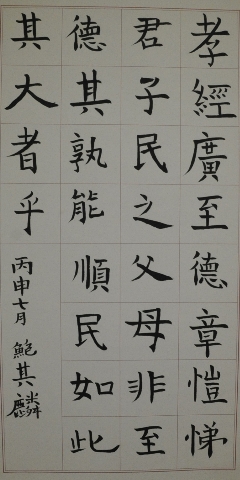 孝經廣至德章愷悌
君子民之父母非至
德其孰能順民如此
其大者乎
丙申七月 鮑其麟